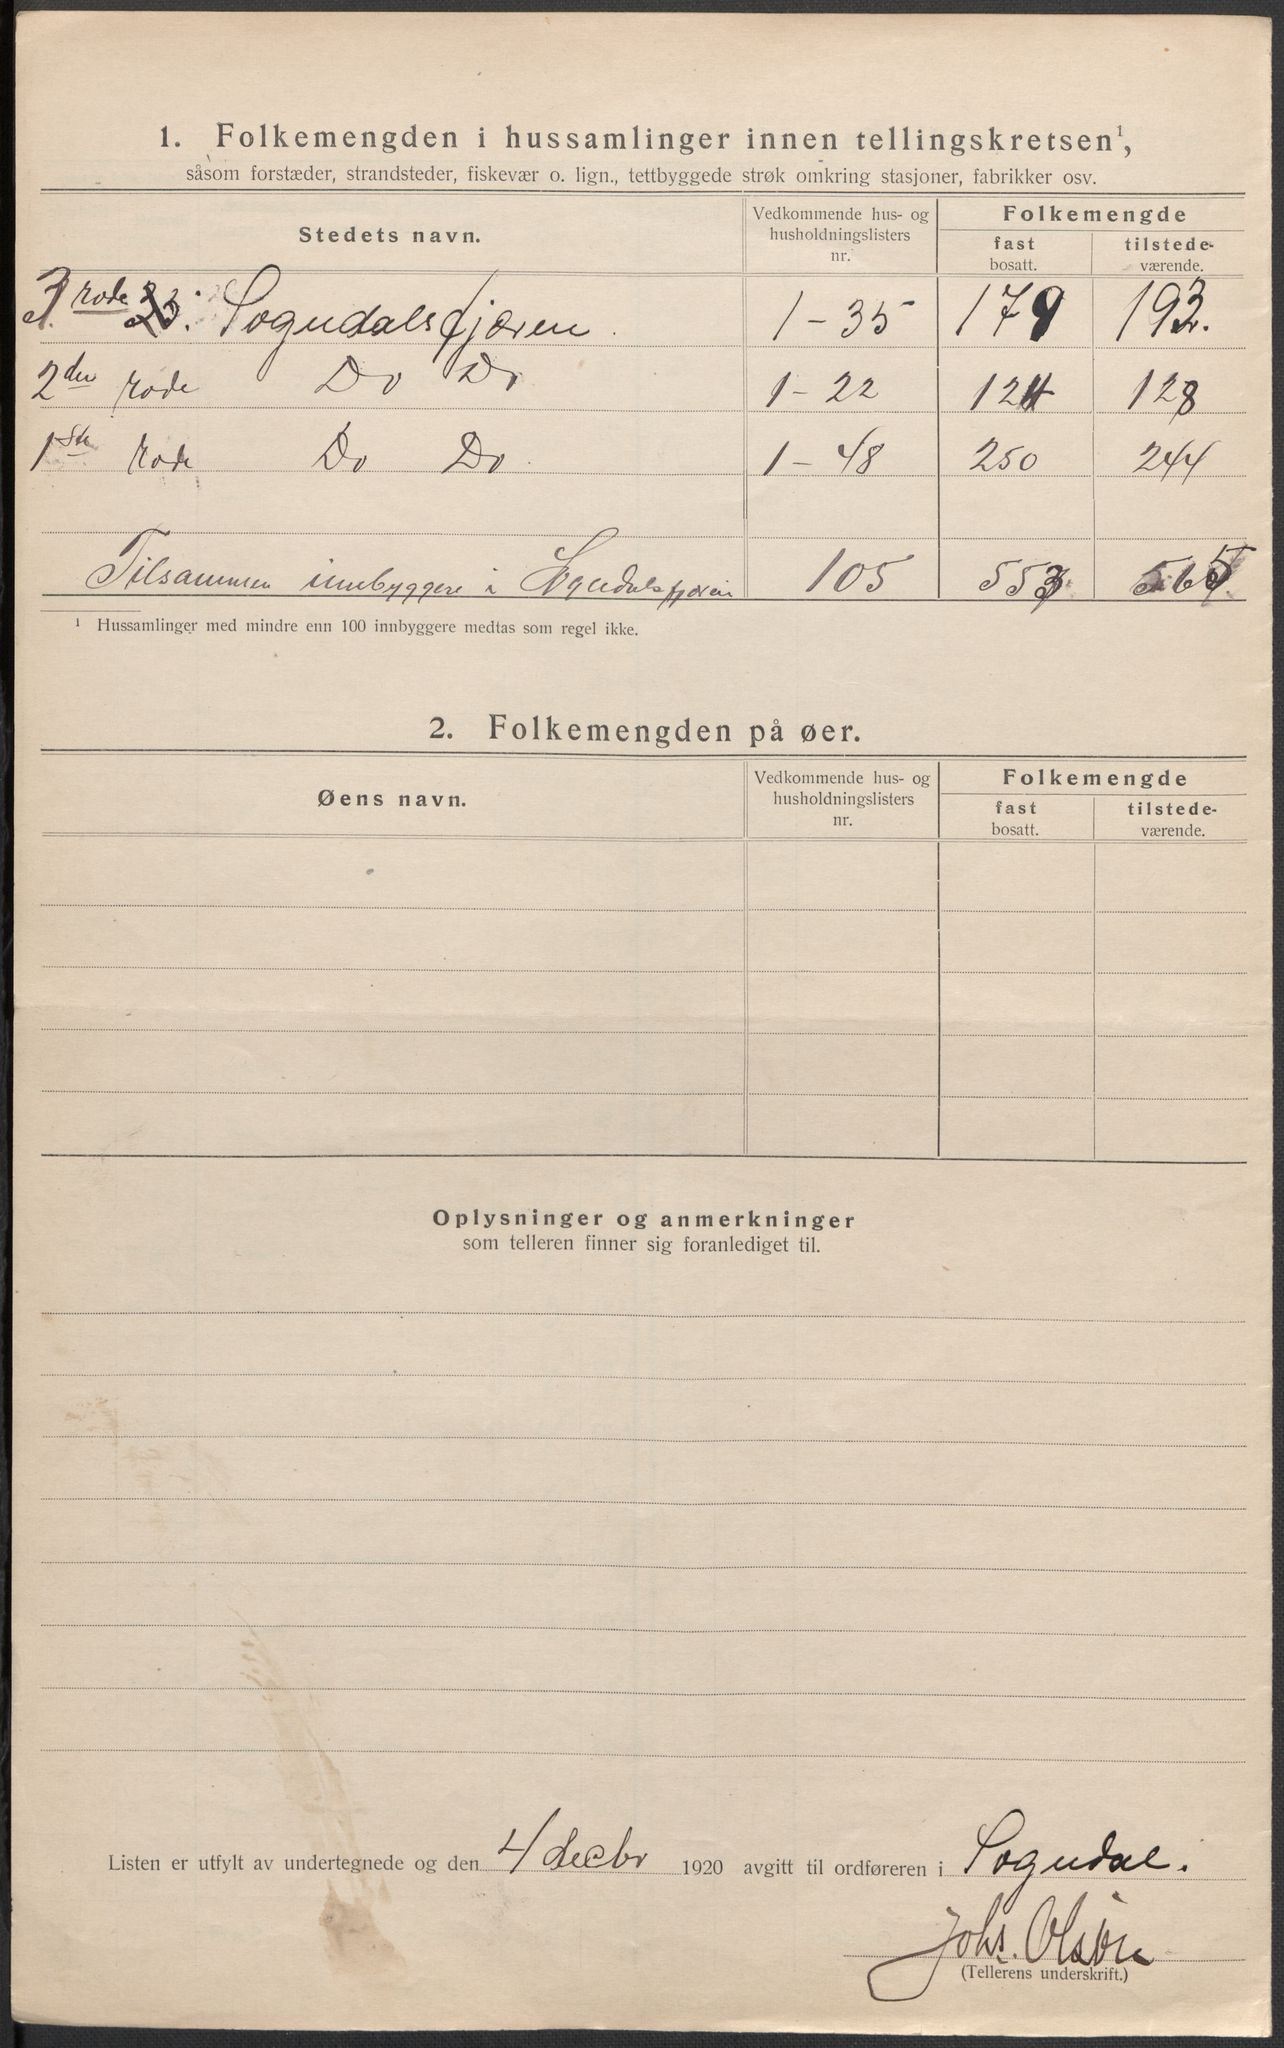 1. Folkemengden i hussamlinger innen tellingskretsen¹,
såsom forstæder, strandsteder, fiskevær o. lign., tettbyggede strøk omkring stasjoner, fabrikker osv.
Stedets navn.
Vedkommende hus- og husholdningslisters nr.
Folkemengde
fast bosatt.
tilstedeværende.
3 rode Sogndalsfjæren 1-35 179 193.
2den rode Do Do 1-22 124 128
1ste rode Do Do 1-48 250 244
Tilsammen innbyggere i Sogndalsfjæren 105 553 565
¹ Hussamlinger med mindre enn 100 innbyggere medtas som regel ikke.
2. Folkemengden på øer.
Øens navn.
Vedkommende hus- og husholdningslisters nr.
Folkemengde
fast bosatt.
tilstedeværende.
Oplysninger og anmerkninger
som telleren finner sig foranlediget til.
Listen er utfylt av undertegnede og den 4/decbr 1920 avgitt til ordføreren i Sogndal.
Johs. Olsen
(Tellerens underskrift.)